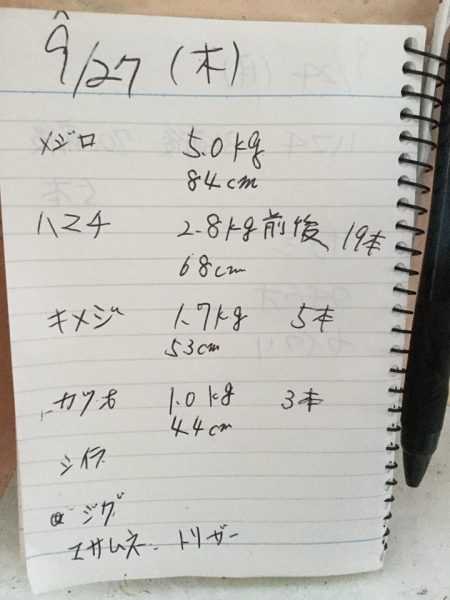 9/27 (木)
メジロ 5.0kg
84cm
ハマチ 2.8kg前後 19本
68cm
キメジ 1.7kg 5本
53cm
カツオ 1.0kg 3本
44cm
シイラ
ジグ
エサムネ、トリガー